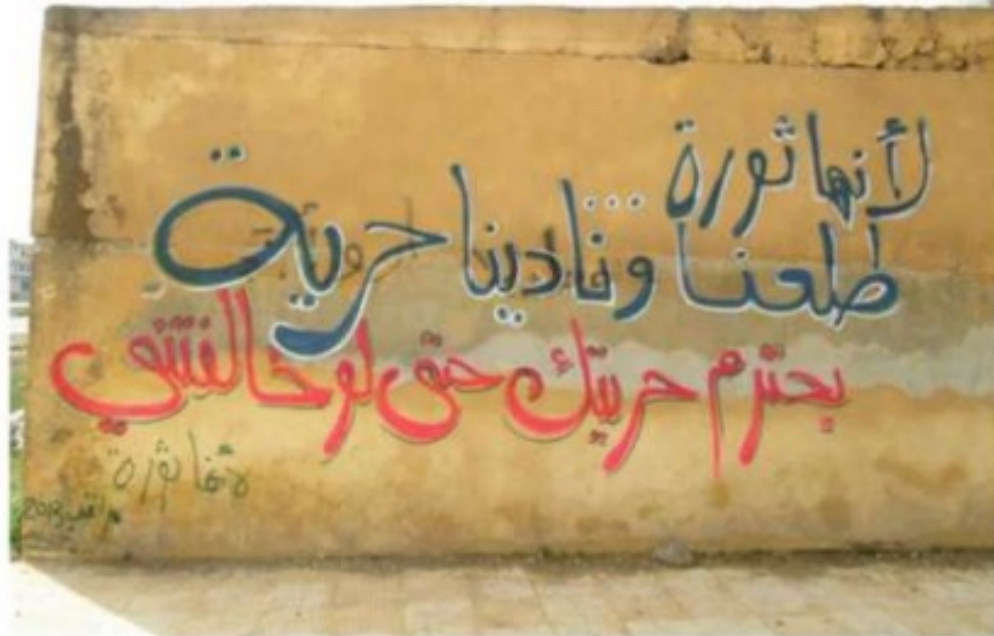 لأنها ثورة
طلعنا ونادينا حرية
بحترم حريتك حتى لو خالفتني
لأنها ثورة
2013